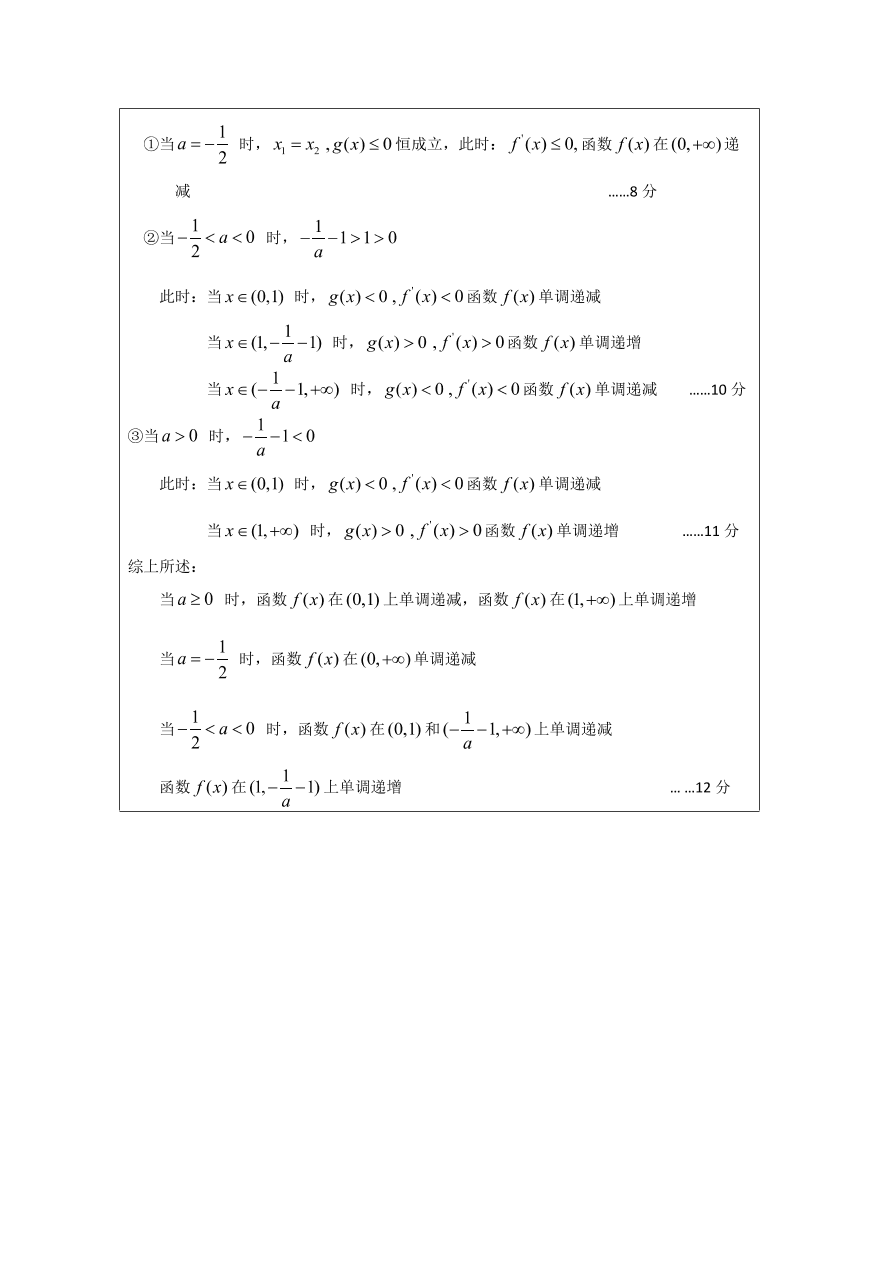 ①当 a = −1/2 时，x₁ = x₂ , g(x) ≤ 0 恒成立，此时： f'(x) ≤ 0, 函数 f(x) 在 (0,+∞) 递
减 ……8 分
②当 −1/2 < a < 0 时，−1/a −1 > 1 > 0
此时：当 x ∈ (0,1) 时，g(x) < 0 , f'(x) < 0 函数 f(x) 单调递减
当 x ∈ (1,−1/a −1) 时，g(x) > 0 , f'(x) > 0 函数 f(x) 单调递增
当 x ∈ (−1/a −1,+∞) 时，g(x) < 0 , f'(x) < 0 函数 f(x) 单调递减 ……10 分
③当 a > 0 时，−1/a −1 < 0
此时：当 x ∈ (0,1) 时，g(x) < 0 , f'(x) < 0 函数 f(x) 单调递减
当 x ∈ (1,+∞) 时，g(x) > 0 , f'(x) > 0 函数 f(x) 单调递增 ……11 分
综上所述：
当 a ≥ 0 时，函数 f(x) 在 (0,1) 上单调递减，函数 f(x) 在 (1,+∞) 上单调递增
当 a = −1/2 时，函数 f(x) 在 (0,+∞) 单调递减
当 −1/2 < a < 0 时，函数 f(x) 在 (0,1) 和 (−1/a −1,+∞) 上单调递减
函数 f(x) 在 (1,−1/a −1) 上单调递增 … …12 分